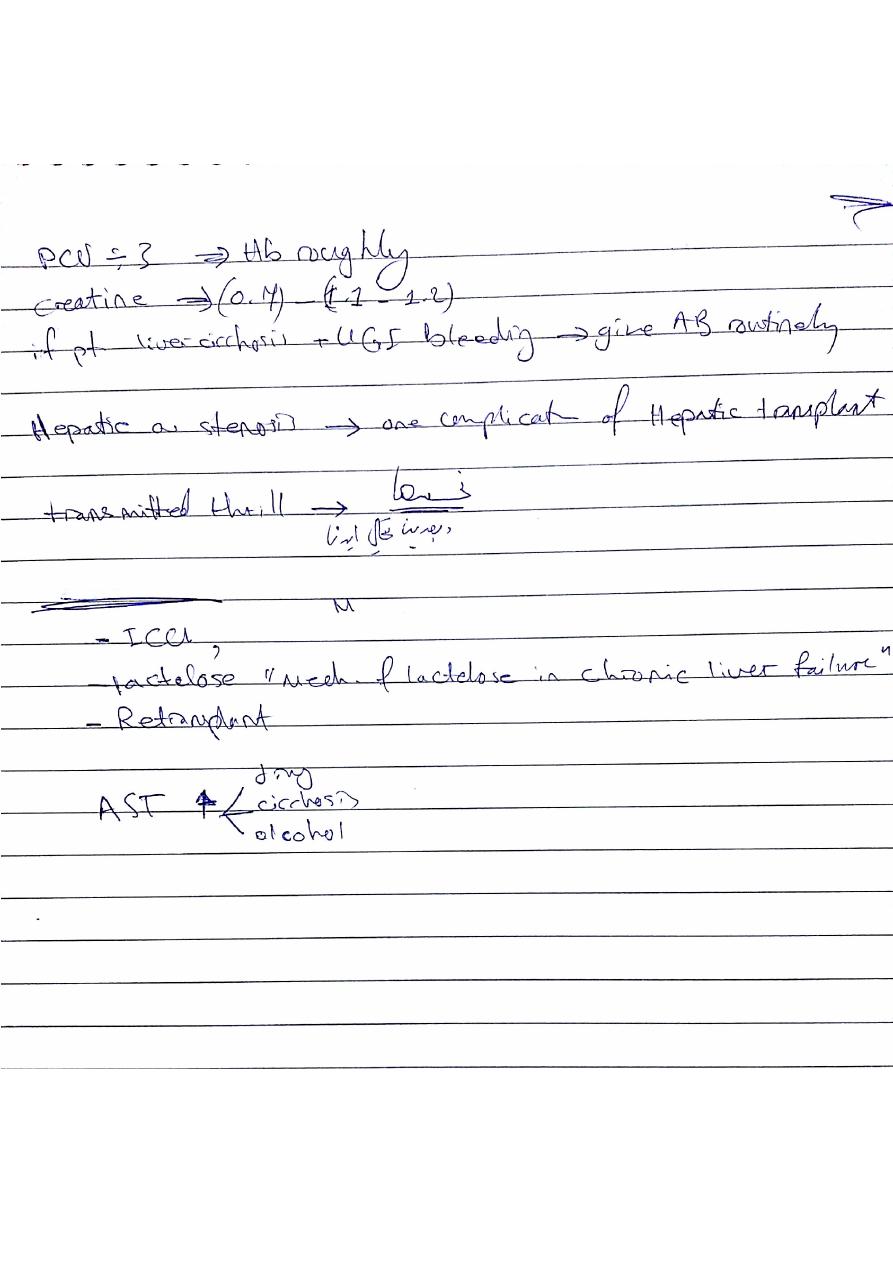 PCV ÷ 3 ⇒ Hb roughly
creatine ⇒ (0.7) - (1.1 - 1.2)
if pt liver cicchosis + UGI bleedig → give AB routinely
Hepatic a. stenosis → one complicat of Hepatic transplant
transmitted thrill →
M
- ICU,
- lactelose "Mech. of lactelose in chronic liver failure"
- Retransplant
drug
AST ↑ cicchosis
alcohol